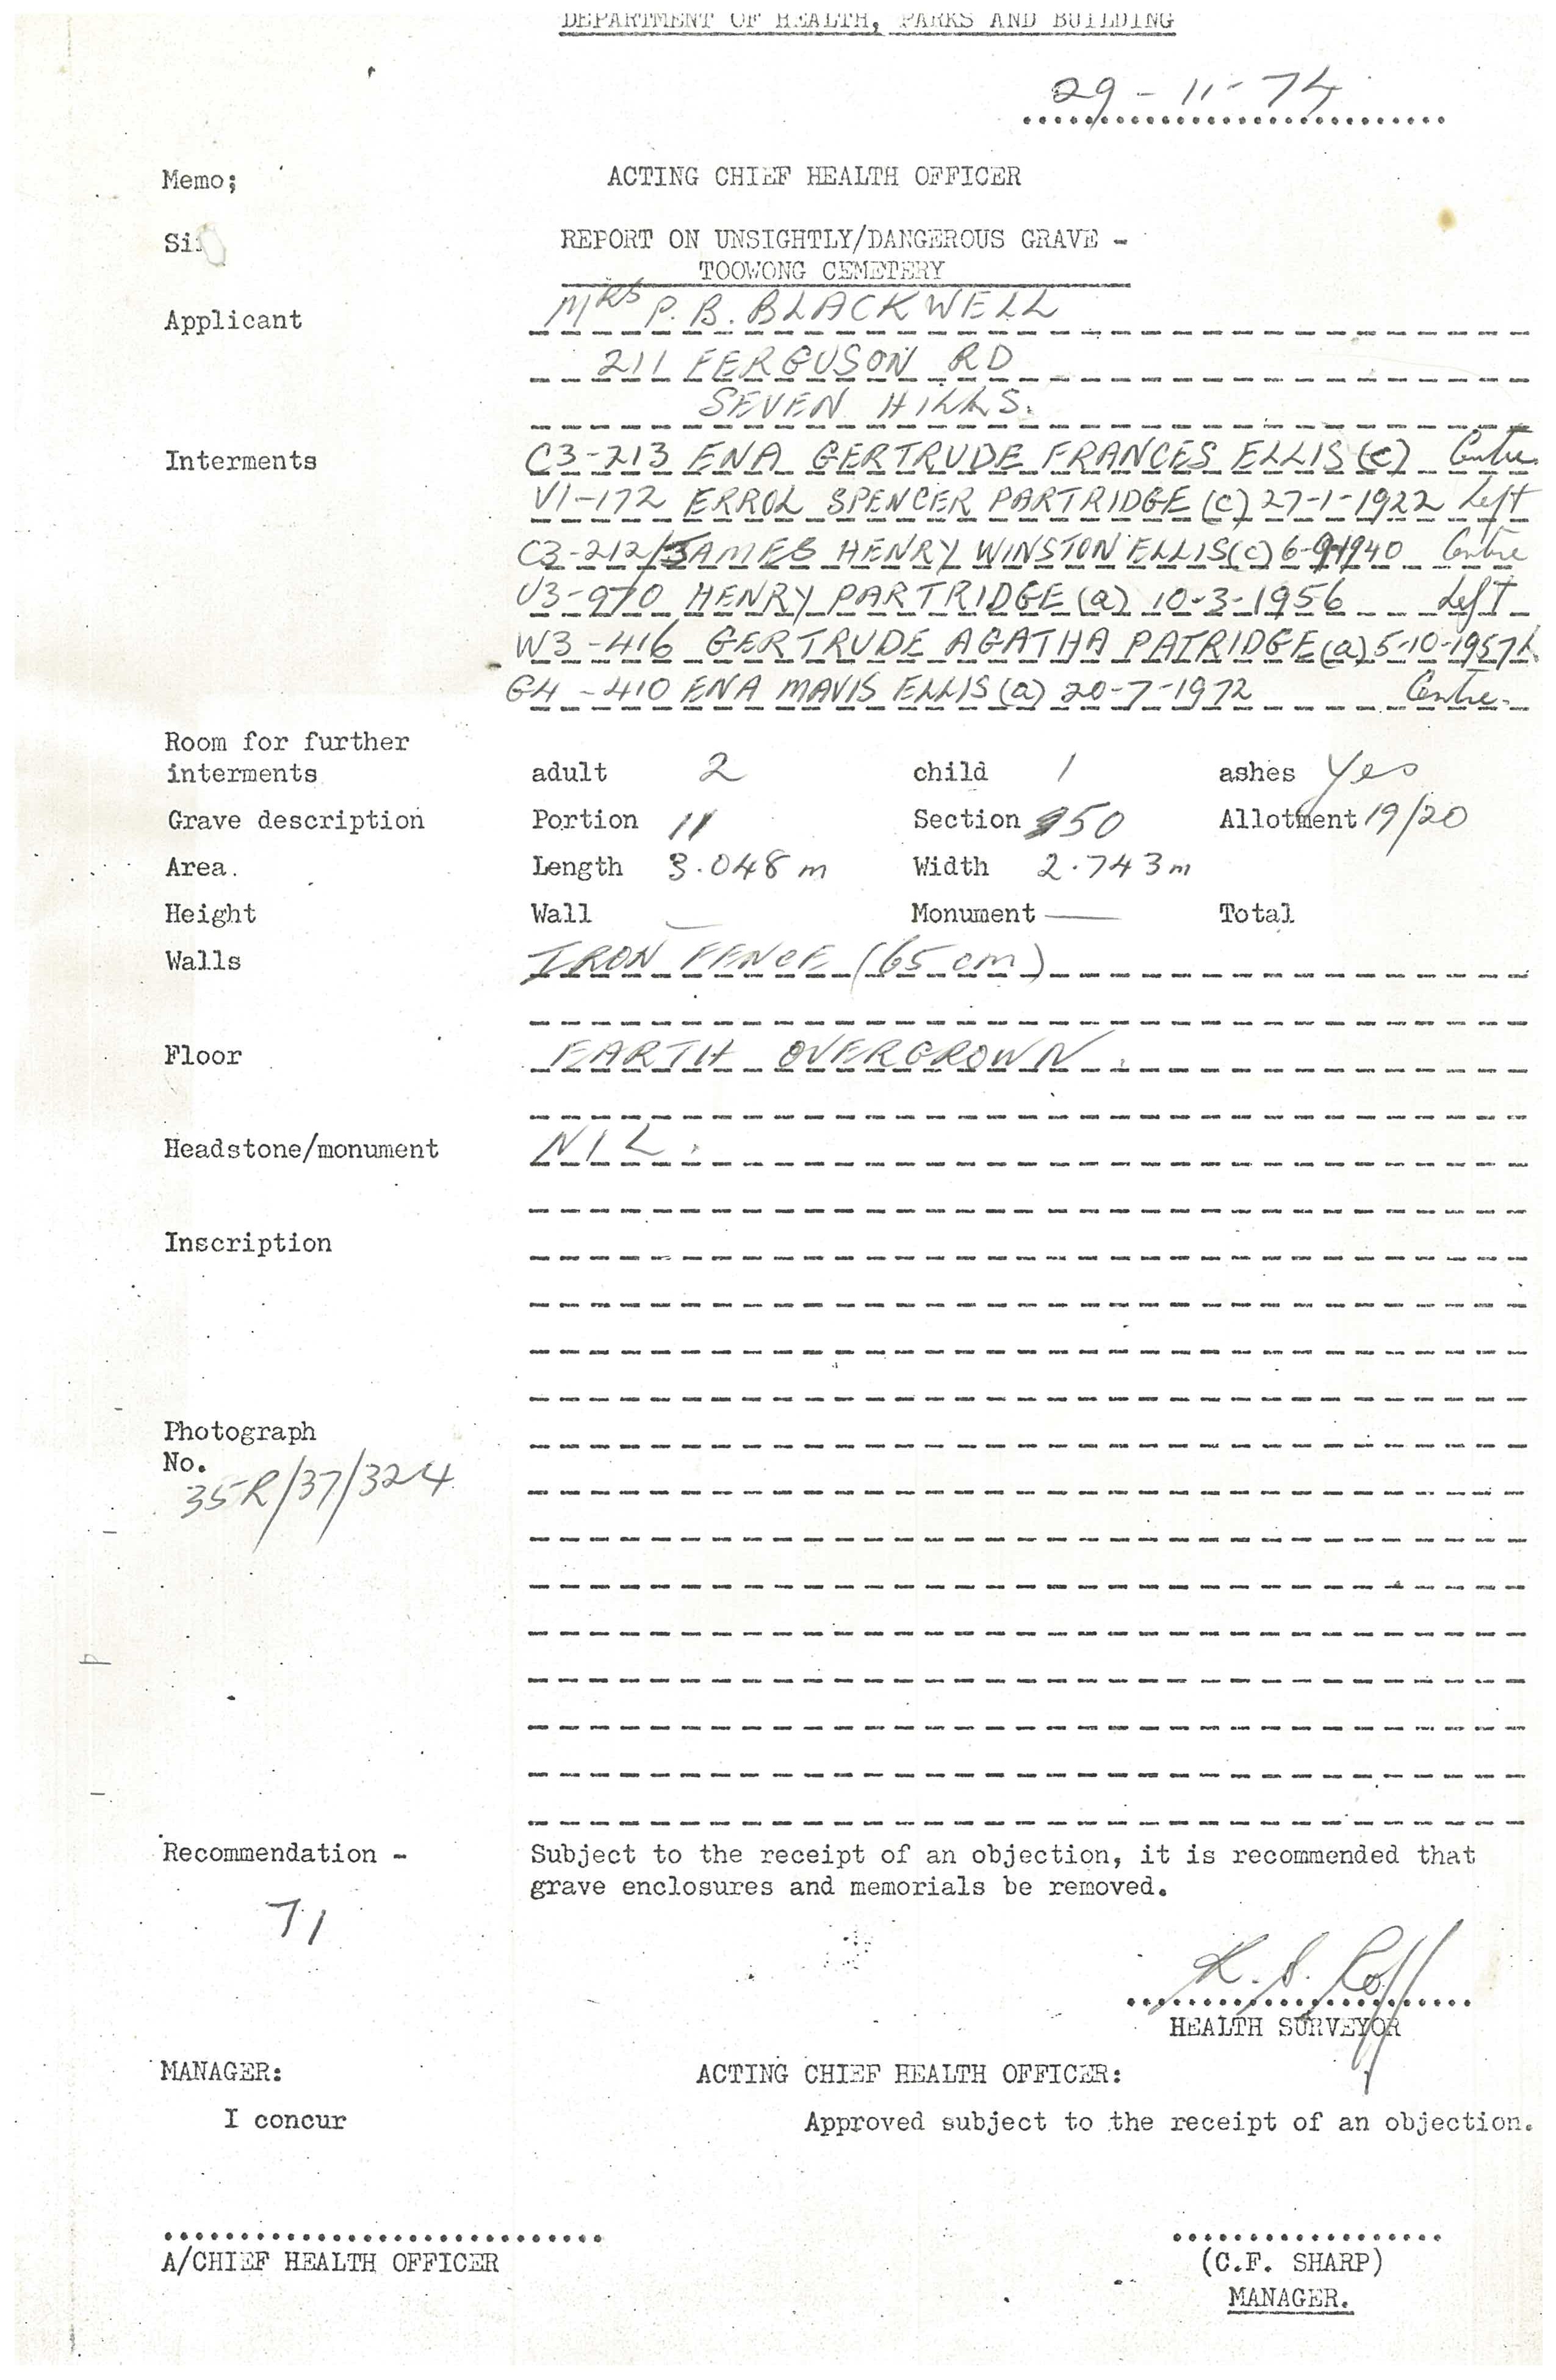 DEPARTMENT OF HEALTH, PARKS AND BUILDING
29-11-74
Memo; ACTING CHIEF HEALTH OFFICER
REPORT ON UNSIGHTLY/DANGEROUS GRAVE -
TOOWONG CEMETERY
Applicant MRS P. B. BLACKWELL
211 FERGUSON RD
SEVEN HILLS.
Interments C3-213 ENA GERTRUDE FRANCES ELLIS (c) Centre
V1-172 ERROL SPENCER PARTRIDGE (c) 27-1-1922 Left
C3-212/3 JAMES HENRY WINSTON ELLIS (c) 6-9-1940 Centre
U3-970 HENRY PARTRIDGE (a) 10-3-1956 Left
W3-416 GERTRUDE AGATHA PATRIDGE (a) 5-10-1957 L
G4-410 ENA MAVIS ELLIS (a) 20-7-1972 Centre.
Room for further
interments adult 2 child 1 ashes Yes
Grave description Portion 11 Section 50 Allotment 19/20
Area. Length 3.048 m Width 2.743 m
Height Wall — Monument — Total
Walls IRON FENCE (65 cm)
Floor EARTH OVERGROWN.
Headstone/monument NIL.
Inscription
Photograph
No.
35R/37/324
Recommendation - Subject to the receipt of an objection, it is recommended that
grave enclosures and memorials be removed.
71
K. S. Roff
HEALTH SURVEYOR
MANAGER: ACTING CHIEF HEALTH OFFICER:
I concur Approved subject to the receipt of an objection.
A/CHIEF HEALTH OFFICER (C.F. SHARP)
MANAGER.